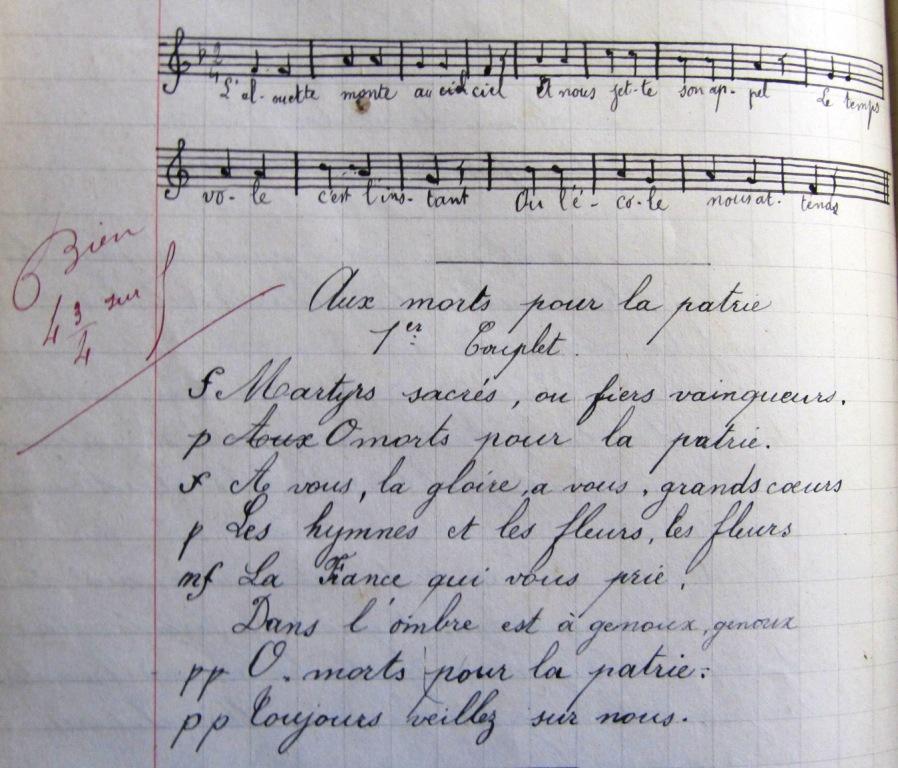 2
4
L'al-ouette monte au ciel ciel Et nous jet-te son ap-pel Le temps
vo-le c'est l'ins-tant Ou l'é-co-le nous at-tends
Bien
4 3/4 sur
Aux morts pour la patrie
1er Couplet.
f Martyrs sacrés, ou fiers vainqueurs.
p Aux O morts pour la patrie.
f A vous, la gloire, a vous, grands cœurs
p Les hymnes et les fleurs, les fleurs
mf La France qui vous prie,
Dans l'ombre est à genoux, genoux
pp O. morts pour la patrie:
pp Toujours veillez sur nous.